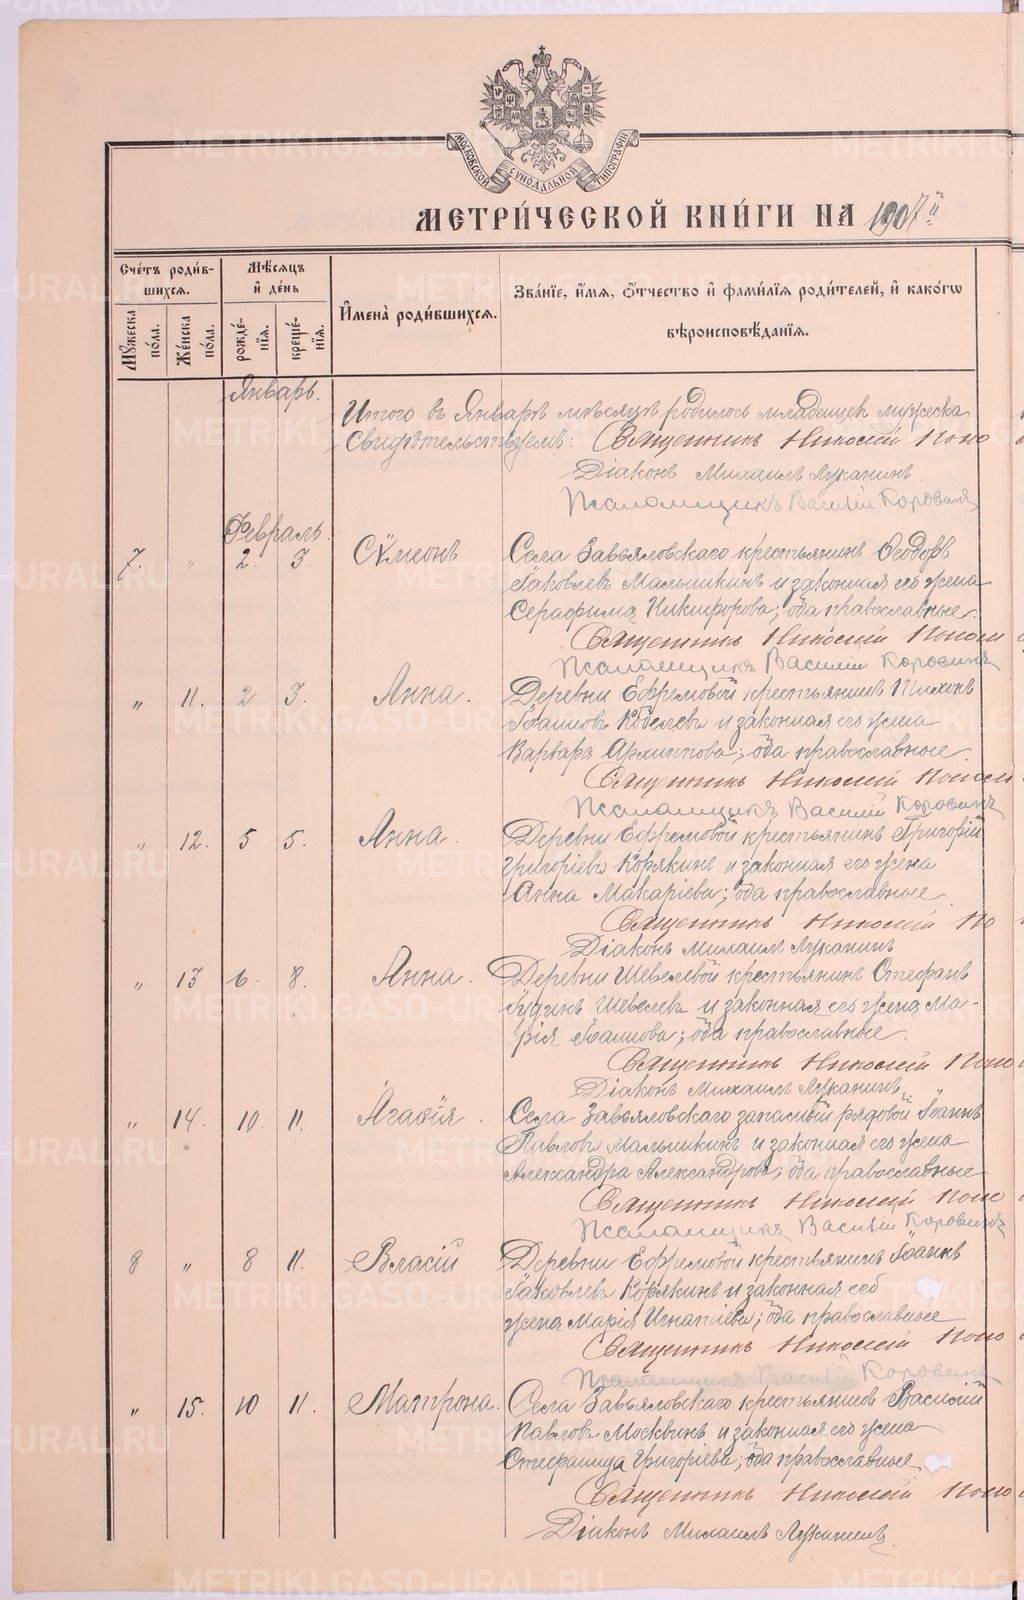 МОСКОВСКОЙ СѴНОДАЛЬНОЙ ТИПОГРАФІИ
МЕТРИ́ЧЕСКОЙ КНИ́ГИ НА 1907й
Сче́тъ роди́в-
шихсѧ.
Мѣ́сѧцъ
и҆ де́нь
И҆мена̀ роди́вшихсѧ.
Зва́нїе, и҆́мѧ, ѻ҆́тчество и҆ фами́лїѧ роди́телей, и҆ како́гѡ
вѣроисповѣ́данїѧ.
Мꙋ́жеска по́ла.
Же́нска по́ла.
рожде́-
нїѧ.
креще́-
нїѧ.
Январь.
Итого въ Январѣ мѣсяцѣ родилось младенцевъ мужеска
Свидѣтельствуемъ: Священникъ Николай Поно
Діаконъ Михаилъ Луканинъ.
Псаломщикъ Василій Коровинъ
Февраль.
7. " 2. 3. Сѵмеонъ Села Завьяловскаго крестьянинъ Ѳеодоръ
Іаковлевъ Малышкинъ и законная его жена
Серафима Никифорова; оба православные.
Священникъ Николай Поном
Псаломщикъ Василій Коровинъ
" 11. 2 3. Анна. Деревни Ефремовой крестьянинъ Тихонъ
Іоанновъ Кобелевъ и законная его жена
Варвара Архиппова; оба православные.
Священникъ Николай Поном
Псаломщикъ Василій Коровинъ
" 12. 5 5. Анна. Деревни Ефремовой крестьянинъ Григорій
Григоріевъ Корякинъ и законная его жена
Анна Макаріева; оба православные.
Священникъ Николай По
Діаконъ Михаилъ Луканинъ
" 13 6. 8. Анна. Деревни Шевелевой крестьянинъ Стефанъ
Шевелевъ и законная его жена Ма-
рія Іоаннова; оба православные.
Священникъ Николай Поно
Діаконъ Михаилъ Луканинъ.
" 14. 10. 11. Агаѳія. Села Завьяловскаго запасный рядовой Іоаннъ
Павловъ Малышкинъ и законная его жена
Александра Александрова; оба православные
Священникъ Николай Поно
Псаломщикъ Василій Коровинъ
8 " 8 11. Власій Деревни Ефремовой крестьянинъ Іоаннъ
Іаковлевъ Корякинъ и законная его
жена Марія Игнатіева; оба православные
Священникъ Николай Поно
Псаломщикъ Василій Коровинъ
" 15. 10 11. Матрона. Села Завьяловскаго крестьянинъ Василій
Павловъ Москвинъ и законная его жена
Стефанида Григоріева; оба православные
Священникъ Николай Поно
Діаконъ Михаилъ Луканинъ.
METRIKI.GASO-URAL.RU